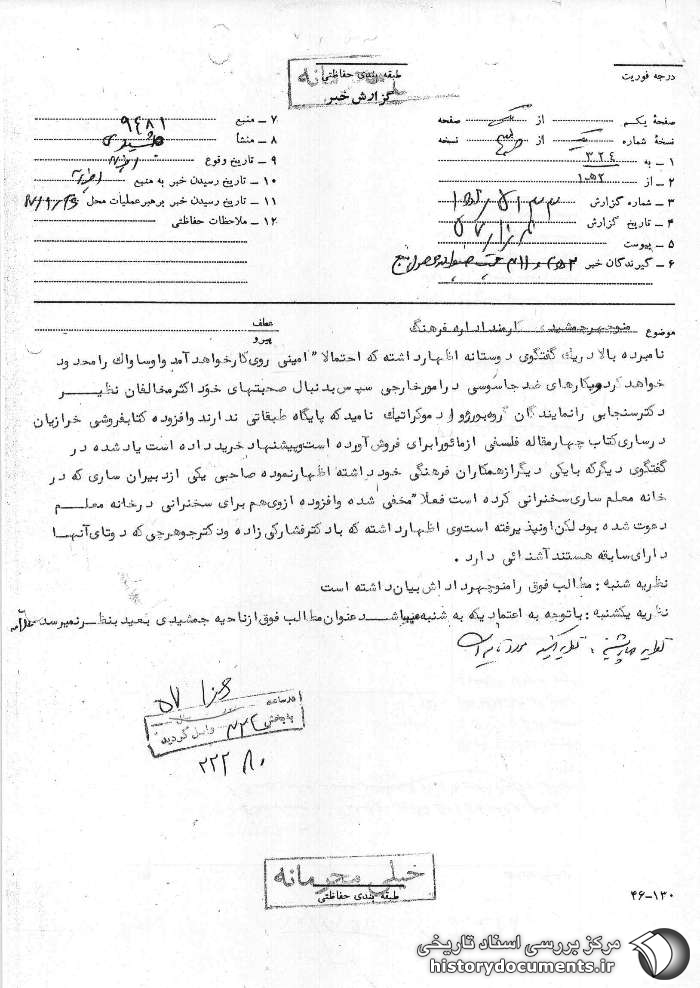 درجه فوریت
طبقه بندی حفاظتی
گزارش خبر
صفحهٔ یکم از صفحه
نسخهٔ شماره یک از نسخه
۱ - به ۳۲۴
۲ - از
۳ - شماره گزارش
۴ - تاریخ گزارش
۵ - پیوست
۶ - گیرندگان خبر
۷ - منبع ۹۴۸۱
۸ - منشأ جمشیدی
۹ - تاریخ وقوع
۱۰ - تاریخ رسیدن خبر به منبع
۱۱ - تاریخ رسیدن خبر برهبر عملیات محل
۱۲ - ملاحظات حفاظتی
موضوع منوچهر جمشیدی کارمند اداره فرهنگ
عطف
پیرو
نامبرده بالا در یک گفتگوی دوستانه اظهار داشته که احتمالا" امینی روی کار خواهد آمد و او ساواک را محدود
خواهد کرد و بکارهای ضد جاسوسی در امور خارجی سپس بدنبال صحبتهای خود اکثر مخالفان نظیر
دکتر سنجابی را نمایندگان گروه بورژوا دموکراتیک نامید که پایگاه طبقاتی ندارند و افزوده کتابفروشی خرازیان
در ساری کتاب چهار مقاله فلسفی از مائو را برای فروش آورده است و پیشنهاد خرید داده است یاد شده در
گفتگوی دیگر که با یکی دیگر از همکاران فرهنگی خود داشته اظهار نموده صاحبی یکی از دبیران ساری که در
خانه معلم ساری سخنرانی کرده است فعلا" مخفی شده و افزوده از وی هم برای سخنرانی در خانه معلم
دعوت شده بود لکن او نپذیرفته است وی اظهار داشته که با دکتر فشارکی زاده و دکتر جوهرچی که دو تای آنها
دارای سابقه هستند آشنائی دارد .
نظریه شنبه : مطالب فوق را منوچهر داداش بیان داشته است
نظریه یکشنبه : با توجه به اعتمادیکه به شنبه میباشد عنوان مطالب فوق از ناحیه جمشیدی بعید بنظر نمیرسد
نظریه چهارشنبه : نظریه یکشنبه مورد تایید است
در ساعت
به بخش ۳۱۲ واصل گردید
خیلی محرمانه
طبقه بندی حفاظتی
۴۶-۱۳۰
مرکز بررسی اسناد تاریخی
historydocuments.ir